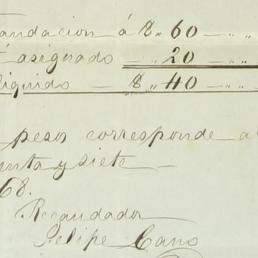 andacion á $,, 60 — ,, — ,,
asignado — ,, 20 — ,, — ,,
liquido — $,, 40 — ,, — ,,
pesos corresponde a
enta y siete —
68.
Recaudador
Felipe Cano